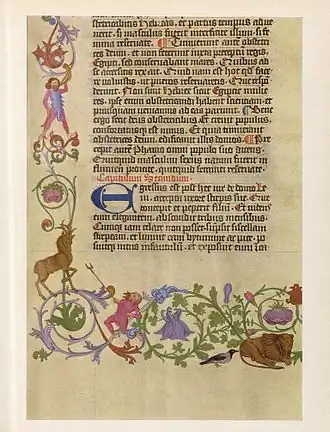 stetricabitis hebreas. et partus tempus adve
nerit. si masculus fuerit interficite illum. si femi
na reservate. Timuerunt autē obstetri
ces deum. et non fecerunt iuxta preceptū regis
Egipti. sed conservabant mares. Quibus ad
se accersitis rex ait. Quid nam est hoc qd face
re voluistis. ut pueros reservaretis. Que respō
derunt. Non sunt hebree sicut Egiptie mulie
res. ipse enim obstetricandi habent scientiam. et
priusquam veniamus ad eas pariunt. Bene
ergo fecit deus obstetricibus. Et crevit populus.
confortatusqꝫ est nimis. Et quia timuerant
obstetrices deum. edificavit illis domos. Pre
cepit autē Pharao omni populo suo dicens.
Quicquid masculini sexus natum fuerit in
flumen proicite. quicquid feminini reservate.
Capitulum secundum.
Egressus est post hec vir de domo Le
vi. accepta uxore stirpis sue. Que
concepit et peperit filiū. Et videns
eum elegantem. abscondit tribus mensibus.
Cumqꝫ iam celare non posset. sumpsit fiscellam
scirpeam. et linivit eam bitumine ac pice. po
suitqꝫ intus infantulū. et exposuit eum in ca